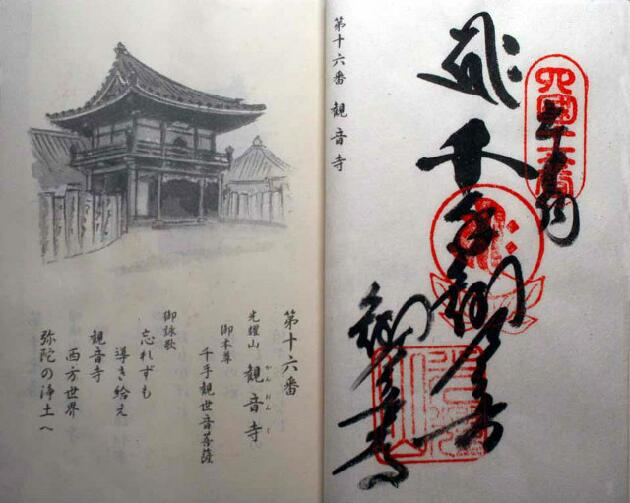 四國十六番
奉納
第十六番 観音寺
第十六番
光耀山 観音寺
かんおんじ
御本尊
千手観世音菩薩
御詠歌
忘れずも
導き給え
観音寺
西方世界
弥陀の浄土へ